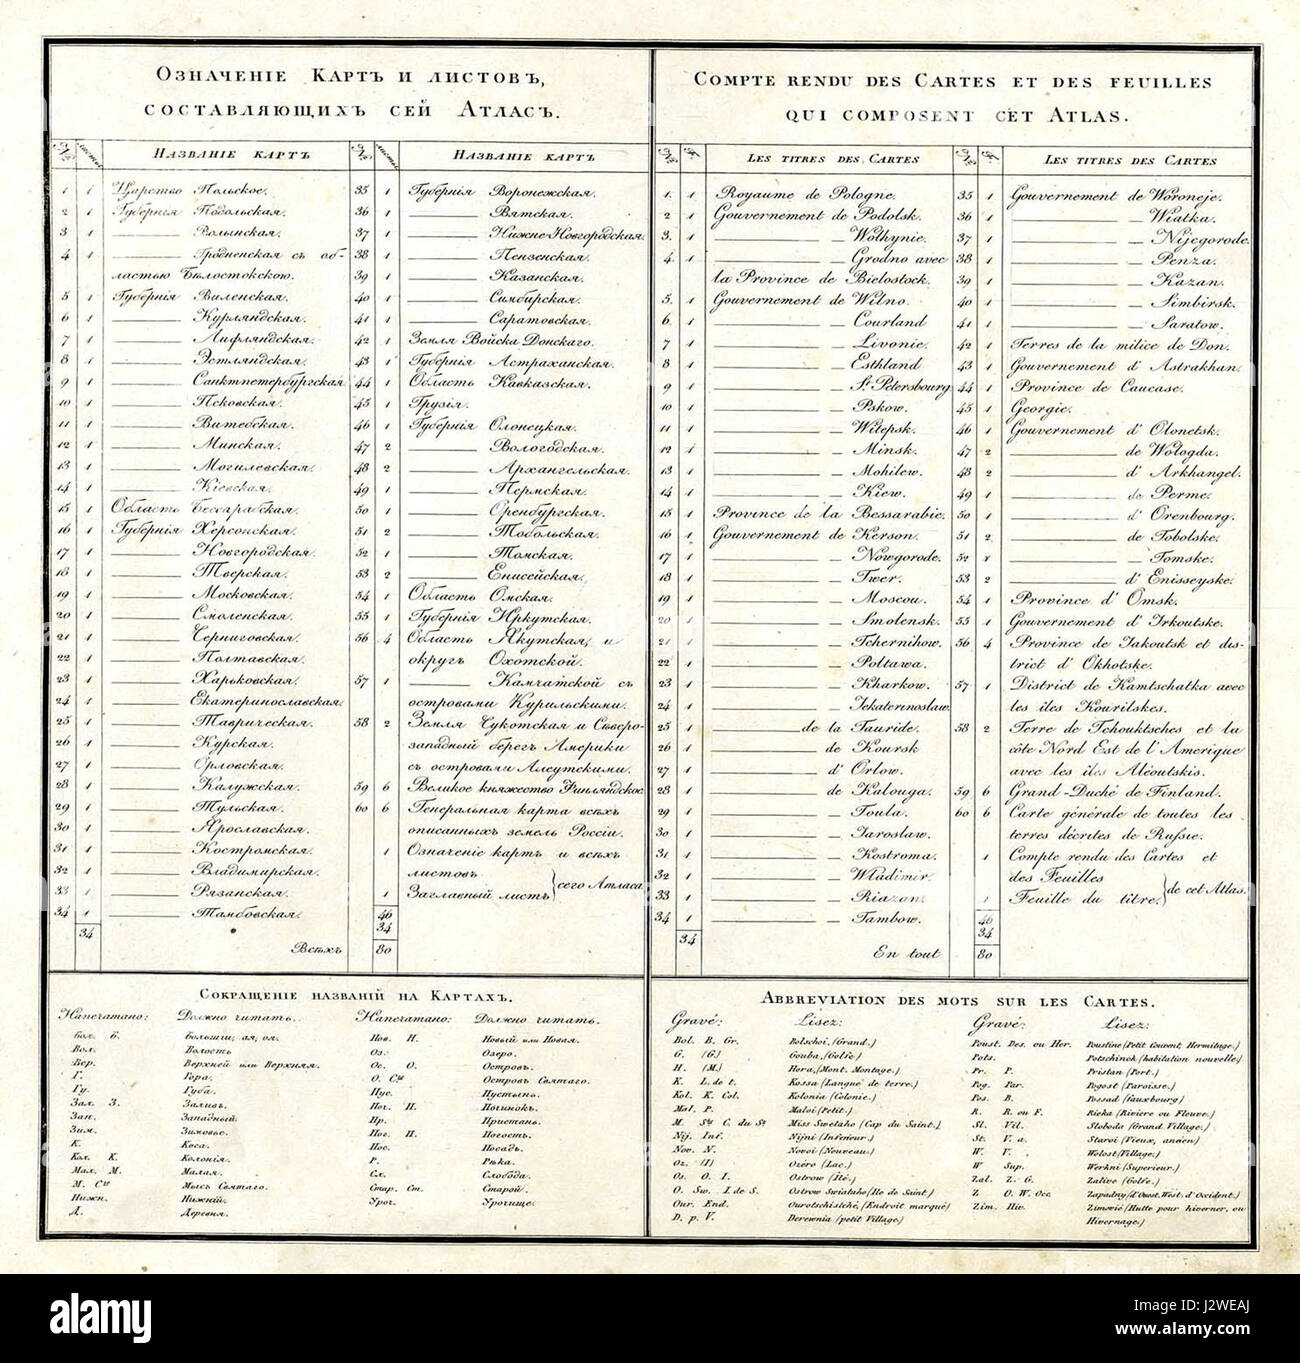 Означеніе Картъ и листовъ,
составляющихъ сей Атласъ.
№ листы Названіе картъ
1 1 Царство Польское.
2 1 Губернія Подольская.
3 1 ——— Волынская.
4 1 ——— Гродненская съ об-
ластью Бѣлостокскою.
5 1 Губернія Виленская.
6 1 ——— Курляндская.
7 1 ——— Лифляндская.
8 1 ——— Эстляндская.
9 1 ——— Санктпетербургская
10 1 ——— Псковская.
11 1 ——— Витебская.
12 1 ——— Минская.
13 1 ——— Могилевская.
14 1 ——— Кіевская.
15 1 Область Бессарабская.
16 1 Губернія Херсонская.
17 1 ——— Новгородская.
18 1 ——— Тверская.
19 1 ——— Московская.
20 1 ——— Смоленская.
21 1 ——— Черниговская.
22 1 ——— Полтавская.
23 1 ——— Харьковская.
24 1 ——— Екатеринославская.
25 1 ——— Таврическая.
26 1 ——— Курская.
27 1 ——— Орловская.
28 1 ——— Калужская.
29 1 ——— Тульская.
30 1 ——— Ярославская.
31 1 ——— Костромская.
32 1 ——— Владимирская.
33 1 ——— Рязанская.
34 1 ——— Тамбовская.
34
№ листы Названіе картъ
35 1 Губернія Воронежская.
36 1 ——— Вятская.
37 1 ——— Нижне-Новгородская.
38 1 ——— Пензенская.
39 1 ——— Казанская.
40 1 ——— Симбирская.
41 1 ——— Саратовская.
42 1 Земля Войска Донскаго.
43 1 Губернія Астраханская.
44 1 Область Кавказская.
45 1 Грузія.
46 1 Губернія Олонецкая.
47 2 ——— Вологодская.
48 2 ——— Архангельская.
49 1 ——— Пермская.
50 1 ——— Оренбургская.
51 2 ——— Тобольская.
52 1 ——— Томская.
53 2 ——— Енисейская.
54 1 Область Омская.
55 1 Губернія Иркутская.
56 4 Область Якутская, и
округъ Охотской.
57 1 ——— Камчатской съ
островами Курильскими.
58 2 Земля Чукотская и Сѣверо-
западный берегъ Америки
съ островами Алеутскими.
59 6 Великое княжество Финляндское.
60 6 Генеральная карта всѣхъ
описанныхъ земель Россіи.
1 Означеніе картъ и всѣхъ
листовъ
1 Заглавный листъ } сего Атласа.
46
34
Всѣхъ 80
Compte rendu des Cartes et des feuilles
qui composent cet Atlas.
№ F. Les titres des Cartes
1. 1 Royaume de Pologne.
2 1 Gouvernement de Podolsk.
3. 1 ——— — Wolhynie.
4. 1 ——— — Grodno avec
la Province de Bielostock.
5. 1 Gouvernement de Wilno.
6. 1 ——— — Courland
7 1 ——— — Livonie.
8 1 ——— — Esthland
9 1 ——— — St. Petersbourg
10 1 ——— — Pskow.
11 1 ——— — Witepsk.
12 1 ——— — Minsk.
13 1 ——— — Mohilew.
14 1 ——— — Kiew.
15 1 Province de la Bessarabie.
16 1 Gouvernement de Kerson.
17 1 ——— — Nowgorode.
18 1 ——— — Twer.
19 1 ——— — Moscou.
20 1 ——— — Smolensk.
21 1 ——— — Tchernihow.
22 1 ——— — Poltawa.
23 1 ——— — Kharkow.
24 1 ——— — Jekaterinoslaw.
25 1 ——— de la Tauride.
26 1 ——— de Koursk
27 1 ——— d' Orlow.
28 1 ——— de Kalouga.
29 1 ——— — Toula.
30 1 ——— — Jaroslaw.
31 1 ——— — Kostroma.
32 1 ——— — Wladimir.
33 1 ——— — Riazan.
34 1 ——— — Tambow.
34
№ F. Les titres des Cartes
35 1 Gouvernement de Woroneje.
36 1 ——— — Wiatka.
37 1 ——— — Nijegorode.
38 1 ——— — Penza.
39 1 ——— — Kazan.
40 1 ——— — Simbirsk.
41 1 ——— — Saratow.
42 1 Terres de la milice de Don.
43 1 Gouvernement d' Astrakhan.
44 1 Province de Caucase.
45 1 Georgie.
46 1 Gouvernement d' Olonetsk.
47 2 ——— de Wologda.
48 2 ——— d' Arkhangel.
49 1 ——— de Perme.
50 1 ——— d' Orenbourg.
51 2 ——— de Tobolske.
52 1 ——— — Tomske.
53 2 ——— d' Enisseyske.
54 1 Province d' Omsk.
55 1 Gouvernement d' Irkoutske.
56 4 Province de Jakoutsk et dis-
trict d' Okhotske.
57 1 District de Kamtschatka avec
les îles Kourilskes.
58 2 Terre de Tchouktsches et la
côte Nord Est de l' Amerique
avec les îles Aléoutskis.
59 6 Grand-Duché de Finland.
60 6 Carte générale de toutes les
terres décrites de Russie.
1 Compte rendu des Cartes et
des Feuilles
1 Feuille du titre. } de cet Atlas.
46
34
En tout 80
Сокращеніе названій на Картахъ.
Напечатано: Должно читать.
Бол. Б. Большіи, ая, ои.
Вол. Волость
Вер. Верхней или Верхняя.
Г. Гора.
Гу. Губа.
Зал. З. Заливъ.
Зап. Западный.
Зим. Зимовье.
К. Коса.
Кол. К. Колонія.
Мал. М. Малая.
М. Сго Мысъ Святаго.
Нижн. Нижній.
Д. Деревня.
Напечатано: Должно читать.
Нов. Н. Новый или Новая.
Оз: Озеро.
Ос. О. Островъ.
О. Сго Островъ Святаго.
Пус. Пустынь.
Поч. П. Починокъ.
Пр. Пристань.
Пог. П. Погостъ.
Пос. Посадъ.
Р. Рѣка.
Сл. Слобода.
Стар. Ст. Старой.
Уроч. Урочище.
Abbreviation des mots sur les Cartes.
Gravé: Lisez:
Bol. B. Gr. Bolschoi, (Grand.)
G. (G) Gouba, (Golfe)
H. (M.) Hora, (Mont. Montage.)
K. L. de t. Kossa (Langue de terre.)
Kol. K. Col. Kolonia (Colonie.)
Mal. P. Maloi (Petit.)
M. Sty C. du St Miss Swetaho (Cap du Saint.)
Nij. Inf. Nijni (Inferieur.)
Nov. N. Novoi (Nouveau.)
Oz. (I) Ozéro (Lac.)
Os. O. I. Ostrow (Ile.)
O. Sw. I. de S. Ostrow Swiataho (Ile de Saint)
Our. End. Ourotschistché, (Endroit marqué)
D. p. V. Derewnia (petit Village.)
Gravé: Lisez:
Poust. Des. ou Her. Poustine (Petit Couvent, Hermitage.)
Pots. Potschinok (habitation nouvelle.)
Pr. P. Pristan (Port.)
Pog. Par. Pogost (Paroisse.)
Pos. B. Possad (fauxbourg)
R. R. ou F. Rieka (Riviere ou Fleuve.)
Sl. Vil. Sloboda (Grand. Village.)
St. V. a. Staroi (Vieux, ancien)
W. V. Wolost (Village.)
W Sup. Werkni (Superieur.)
Zal. Z. G. Zalive (Golfe.)
Z O. W. Occ. Zapadny (d'Ouest. West. d'Occident.)
Zim. Hiv. Zimovié (Hutte pour hiverner, ou
Hivernage.)
alamy
Image ID: J2WEAJ
www.alamy.com